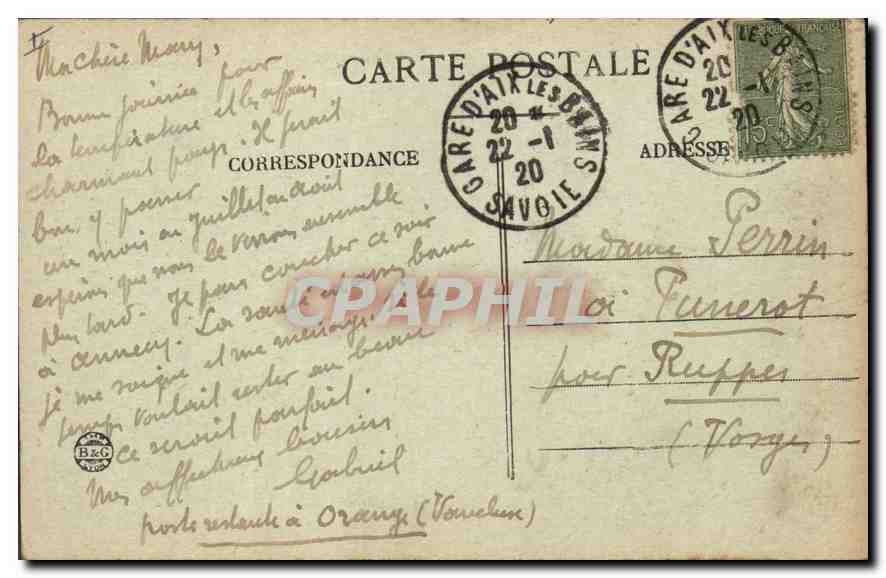 I
Ma chère Mary,
Bonne journée pour
la température et les affaires
charmant pays. Il ferait
bon y passer
un mois en Juillet ou Août
espérons que nous le verrons ensemble
plus tard. Je pars coucher ce soir
à Annecy. La santé est assez bonne
je me soigne et me ménage, si le
temps voulait rester au beau
ce serait parfait.
Mes affectueux baisers
Gabriel
poste restante à Orange (Vaucluse)
CARTE POSTALE
CORRESPONDANCE
ADRESSE
GARE D'AIX LES BAINS
20 *
22 -1
20
SAVOIE
GARE D'AIX LES BAINS
20
22 -1
20
15c
Madame Perrin
à Punerot
par Ruppes
(Vosges)
CPAPHIL
B&G
LYON